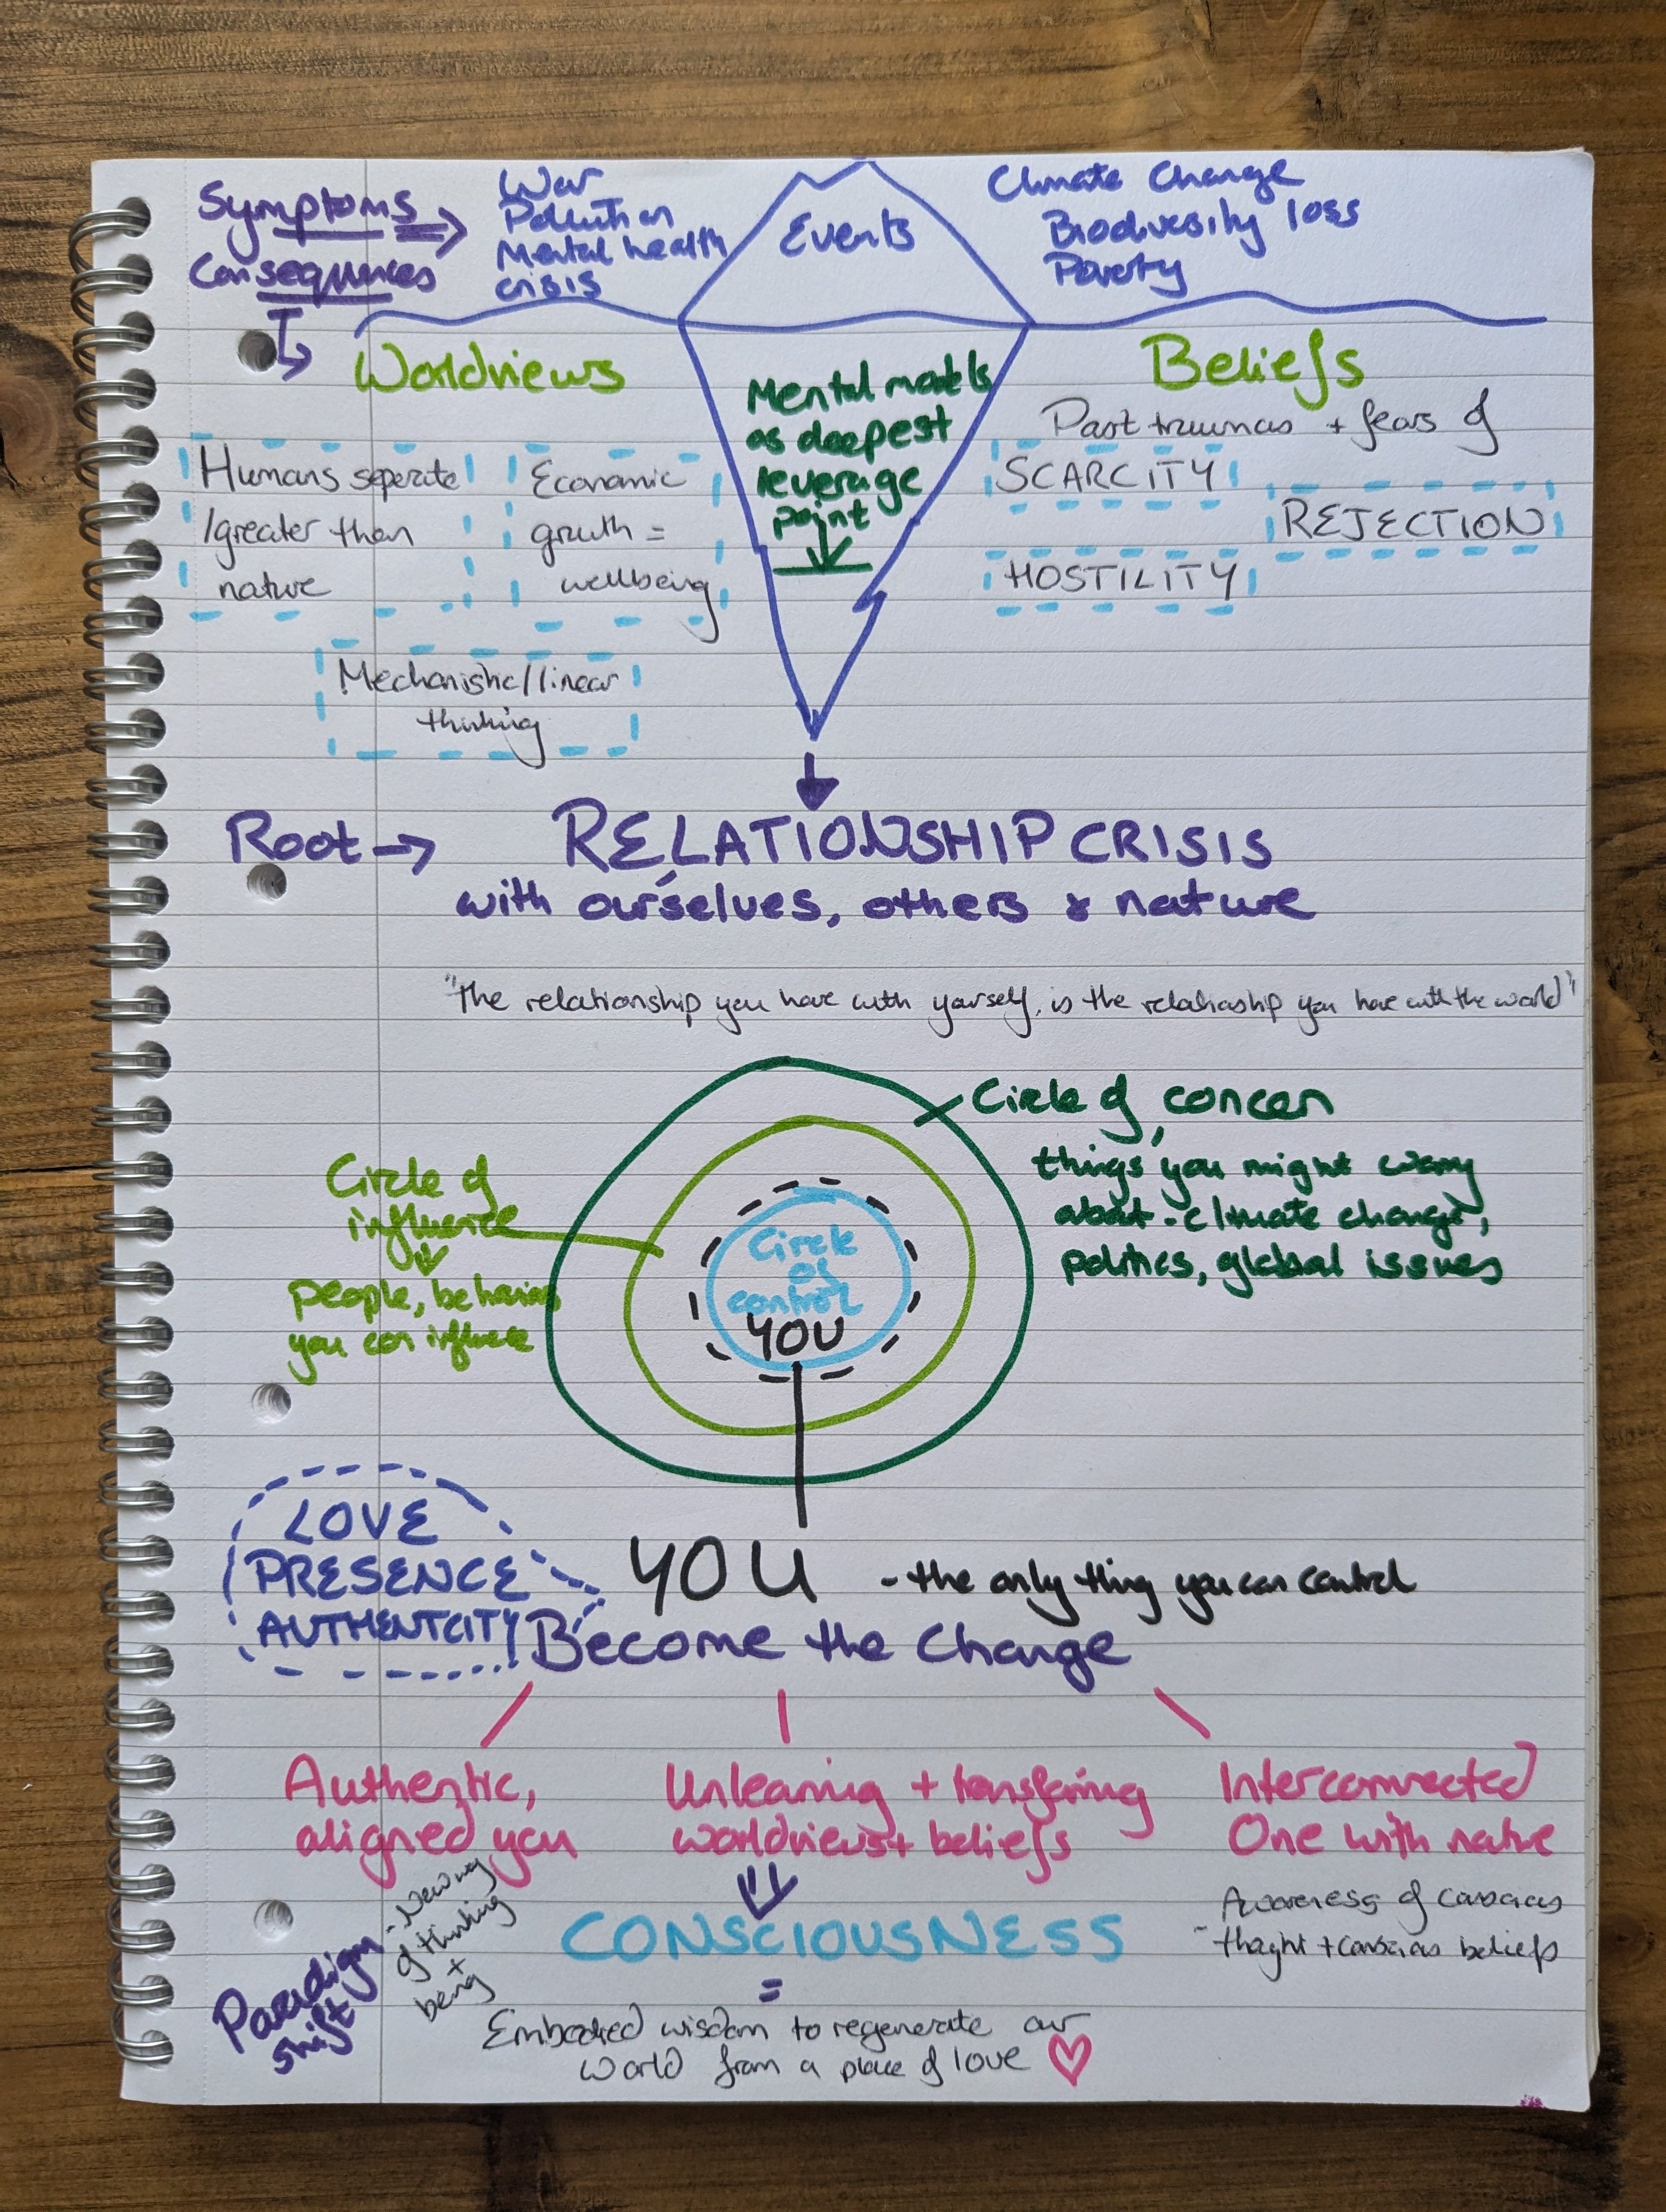 Symptoms
Consequences
War
Pollution
Mental health
crisis
Events
Climate Change
Biodiversity loss
Poverty
Worldviews
Humans seperate
/greater than
nature
Economic
growth =
wellbeing
Mechanistic/linear
thinking
Mental models
as deepest
leverage
point
Beliefs
Past traumas + fears of
SCARCITY
REJECTION
HOSTILITY
Root → RELATIONSHIP CRISIS
with ourselves, others & nature
"The relationship you have with yourself, is the relationship you have with the world"
Circle of concern
things you might worry
about - climate change,
politics, global issues
Circle of
influence
people, behaviours
you can influence
Circle
of
control
YOU
LOVE
PRESENCE
AUTHENTCITY
YOU - the only thing you can control
Become the Change
Authentic,
aligned you
Unlearning + transforming
worldviews + beliefs
Interconnected
One with nature
Paradigm
shift
- New way
of thinking
+
being
CONSCIOUSNESS
- Awareness of conscious
thought + conscious beliefs
=
Embodied wisdom to regenerate our
world from a place of love